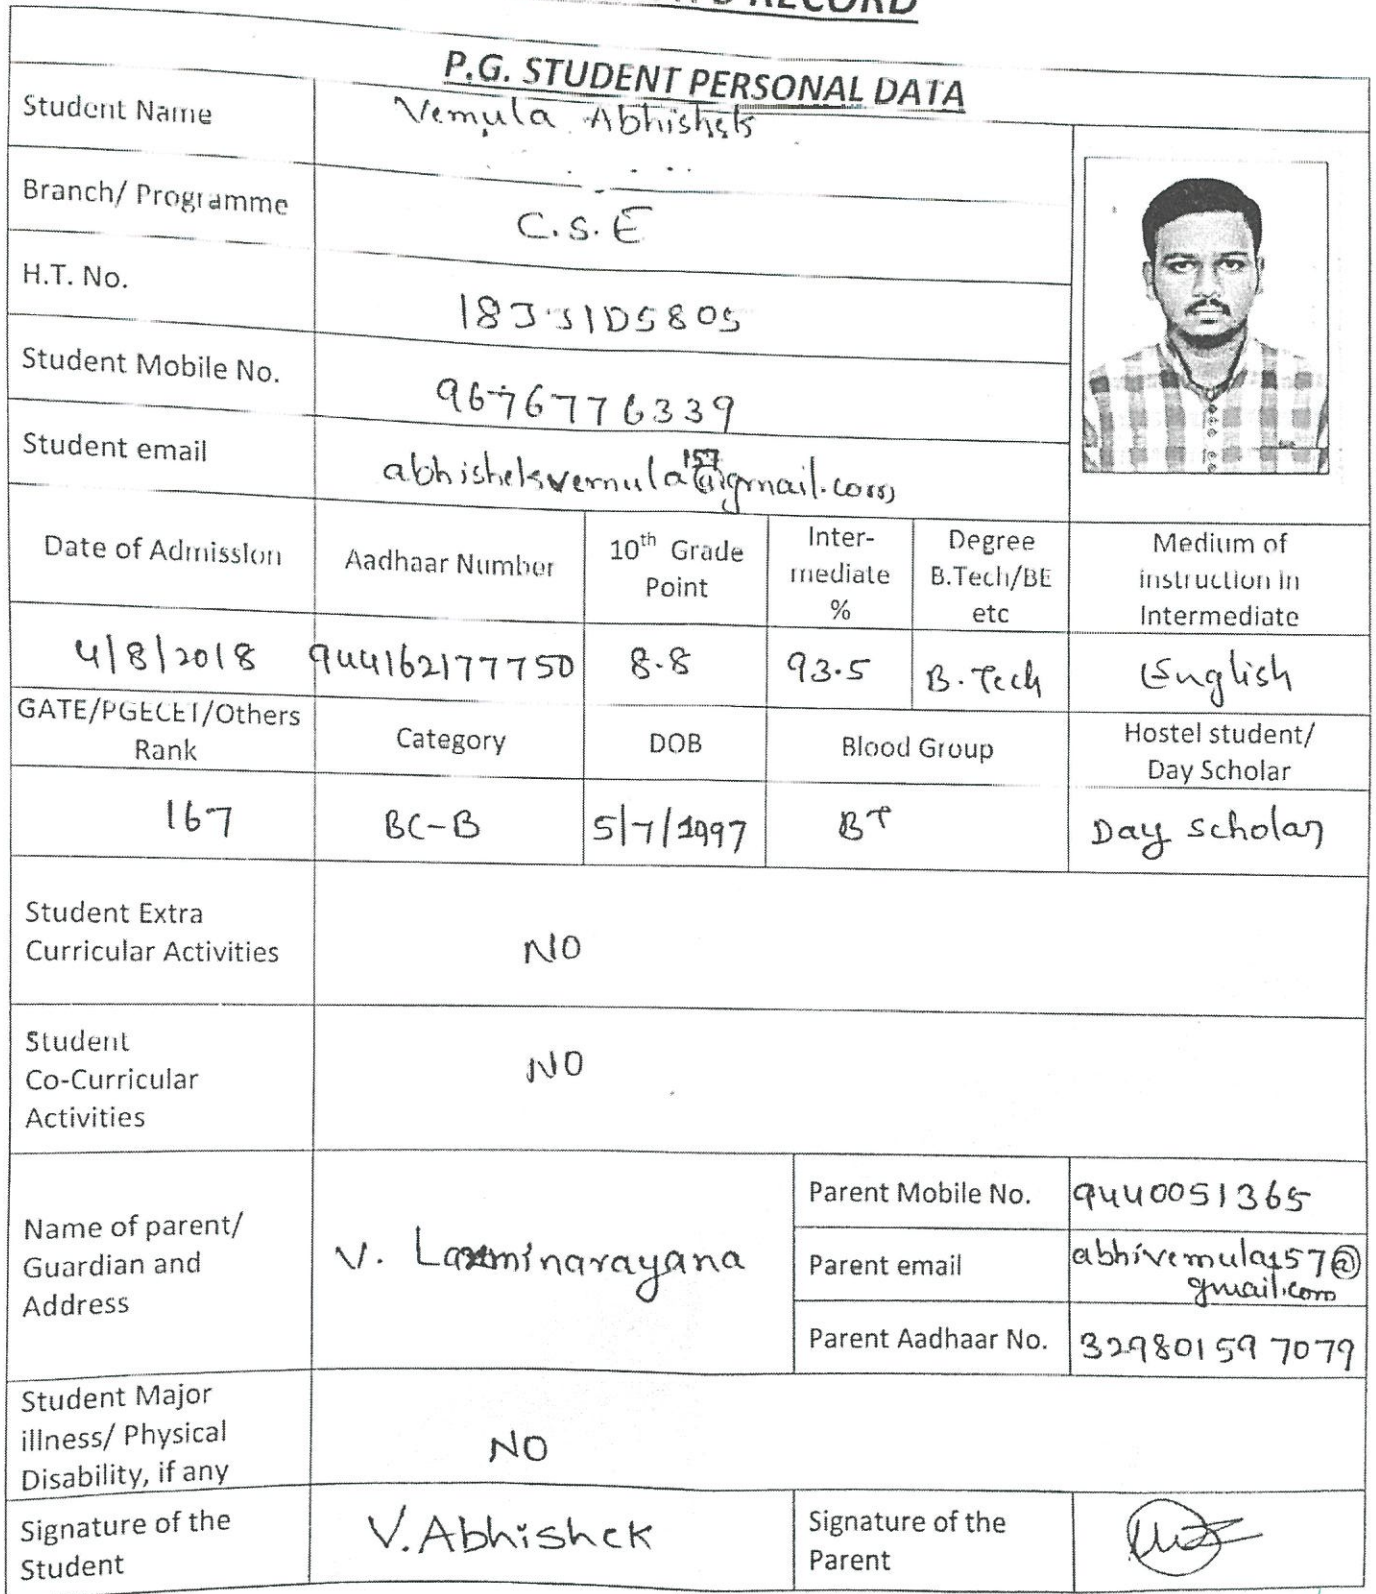 RECORD
P.G. STUDENT PERSONAL DATA
Student Name Vemula Abhishek
Branch/ Programme C.S.E
H.T. No. 18JJ1D5805
Student Mobile No. 9676776339
Student email abhishekvemula157@gmail.com
Date of Admission Aadhaar Number 10th Grade Point Inter-mediate % Degree B.Tech/BE etc Medium of instruction in Intermediate
4/8/2018 944162177750 8.8 93.5 B.Tech English
GATE/PGECET/Others Rank Category DOB Blood Group Hostel student/ Day Scholar
167 BC-B 5/7/1997 B+ Day Scholar
Student Extra
Curricular Activities NO
Student
Co-Curricular
Activities NO
Name of parent/
Guardian and
Address
V. Laxminarayana
Parent Mobile No. 9440051365
Parent email abhivemula157@
gmail.com
Parent Aadhaar No. 32980159 7079
Student Major
illness/ Physical
Disability, if any NO
Signature of the
Student V.Abhishek
Signature of the
Parent